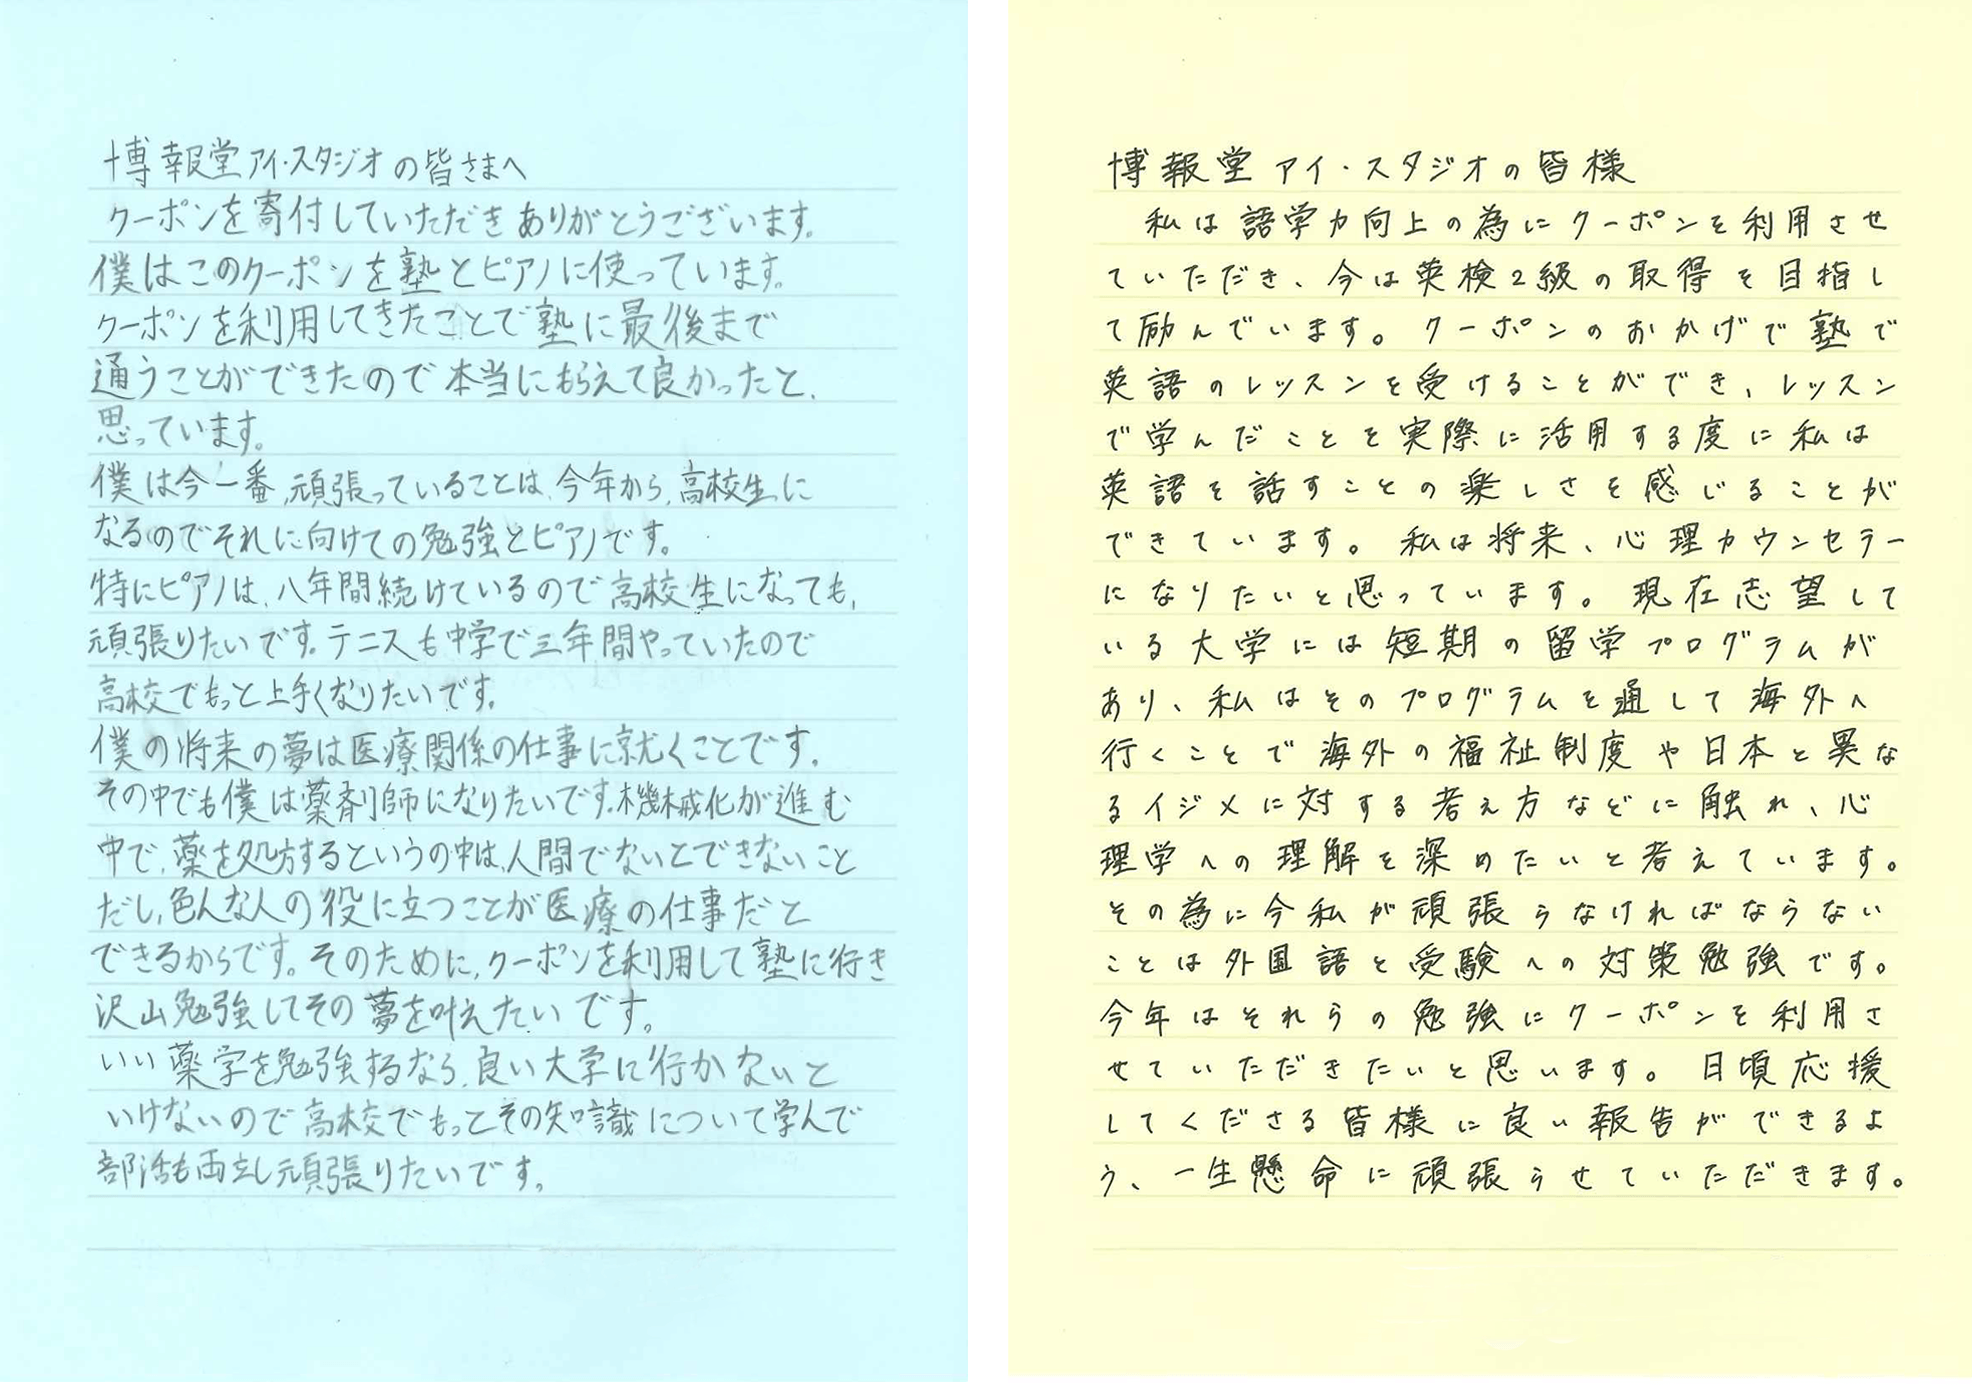 博報堂アイ・スタジオの皆さまへ
クーポンを寄付していただきありがとうございます。
僕はこのクーポンを塾とピアノに使っています。
クーポンを利用してきたことで塾に最後まで
通うことができたので本当にもらえて良かったと、
思っています。
僕は今一番、頑張っていることは、今年から、高校生に
なるのでそれに向けての勉強とピアノです。
特にピアノは、八年間続けているので高校生になっても、
頑張りたいです。テニスも中学で三年間やっていたので
高校でもっと上手くなりたいです。
僕の将来の夢は医療関係の仕事に就くことです。
その中でも僕は薬剤師になりたいです。機械化が進む
中で、薬を処方するというの中は、人間でないとできないこと
だし、色んな人の役に立つことが医療の仕事だと
できるからです。そのために、クーポンを利用して塾に行き
沢山勉強してその夢を叶えたいです。
いい薬学を勉強するなら、良い大学に行かないと
いけないので高校でもっとその知識について学んで
部活も両立し頑張りたいです。
博報堂アイ・スタジオの皆様
私は語学力向上の為にクーポンを利用させ
ていただき、今は英検2級の取得を目指し
て励んでいます。クーポンのおかげで塾で
英語のレッスンを受けることができ、レッスン
で学んだことを実際に活用する度に私は
英語を話すことの楽しさを感じることが
できています。私は将来、心理カウンセラー
になりたいと思っています。現在志望して
いる大学には短期の留学プログラムが
あり、私はそのプログラムを通して海外へ
行くことで海外の福祉制度や日本と異な
るイジメに対する考え方などに触れ、心
理学への理解を深めたいと考えています。
その為に今私が頑張らなければならない
ことは外国語と受験への対策勉強です。
今年はそれらの勉強にクーポンを利用さ
せていただきたいと思います。日頃応援
してくださる皆様に良い報告ができるよ
う、一生懸命に頑張らせていただきます。